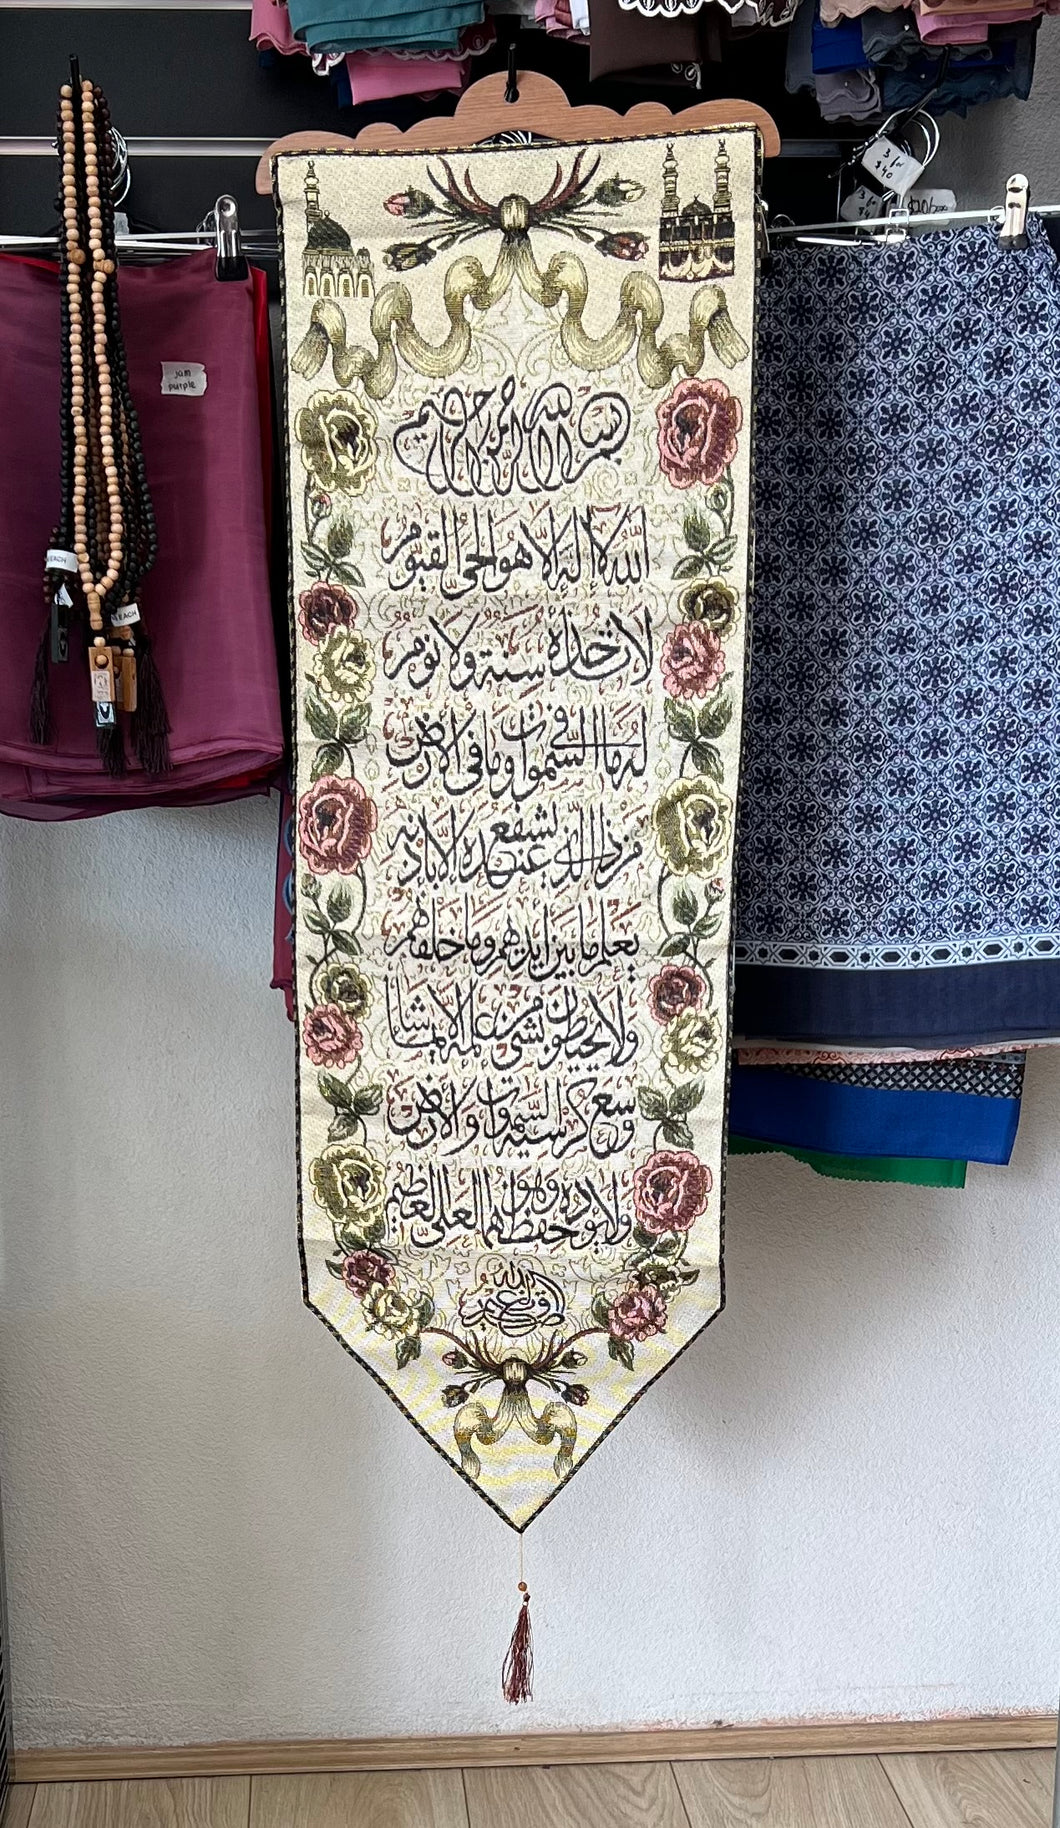 3 for
$40
3 for
$20/
jam
purple
EACH
EACH
بسم الله الرحمن الرحيم
الله لا إله إلا هو الحي القيوم
لا تأخذه سنة ولا نوم
له ما في السموات وما في الأرض
من ذا الذي يشفع عنده إلا بإذنه
يعلم ما بين أيديهم وما خلفهم
ولا يحيطون بشيء من علمه إلا بما شاء
وسع كرسيه السموات والأرض
ولا يؤده حفظهما وهو العلي العظيم
صدق الله العظيم